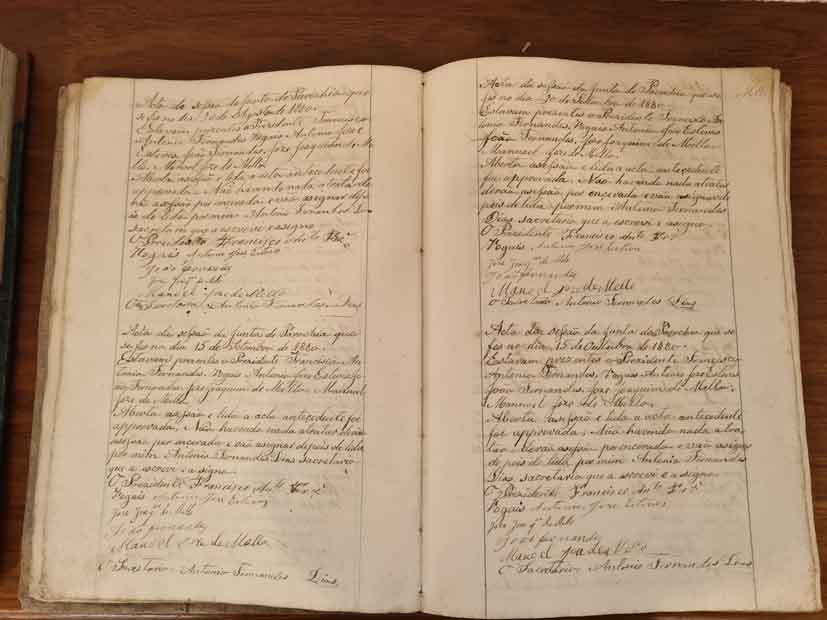 Acta da sessão da Junta de Parochia que
se fes no dia 30 de Agosto de 1880.
Estavam prezentes o Prezidente Francisco
Antonio Fernandes Vogaes Antonio Jose E
steves, João Fernandes, Jose Joaquim de Me
llo, Manoel Jose de Mello.
Aberta asessão e lida a acta antecedente foi
approvada. Não havendo nada atratar de
rão asessão por encerada e vão asignar depo
is de lida por mim Antonio Fernandes Di
as secretario que a escrevi e asigno
O Prezidente Francisco Anto Frz
Vogais Antonio Jose Esteves
João Fernandes
Jose Joaqm de Mello
Manoel Joze de Mello
O Secretario Antonio Fernandes Dias
Acta da sessão da Junta de Parochia que
se fes no dia 15 de Setembro de 1880.
Estavam prezentes o Prezidente Francisco An
tonio Fernandes, Vogais Antonio Jose Esteves Jo
ão Fernandes Jose Joaquim de Mello, Manoel
Joze de Mello.
Aberta asessão e lida a acta antecedente foi
approvada. Não havendo nada atratar derão
asessão por encerada e vão asignar depois de lida
por mim Antonio Fernandes Dias sacretario
que a escrevi e asigno
O Prezidente Francisco Anto Frz
Vogais Antonio Jose Esteves
Jose Joaqm de Mello
João Fernandes
Manoel Joze de Mello
O Secretario Antonio Fernandes Dias
Acta da sessão da Junta de Parochia que se
fes no dia 30 de Setembro de 1880.
Estavam prezentes o Prezidente Francisco An
tonio Fernandes, Vogaes Antonio Jose Esteves
João Fernandes, Jose Joaquim de Mello
Manoel Joze de Mello.
Aberta asessão e lida a acta antecedente
foi approvada. Não havendo nada atratar
derão asessão por encerada e vão asignar de
pois de lida por mim Antonio Fernandes
Dias, sacretario que a escrevi e asigno
O Prezidente Francisco Anto Frz
Vogais Antonio Jose Esteves
Jose Joaqm de Mello
João Fernandes
Manoel Joze de Mello
O Secretario Antonio Fernandes Dias
Acta da sessão da Junta da Parochia que se
fes no dia 15 de Outubro de 1880.
Estavam prezentes o Prezidente Francisco
Antonio Fernandes, Vogaes Antonio Jose Esteves
João Fernandes, Jose Joaquim de Mello,
Manoel Joze de Mello.
Aberta asessão e lida a acta antecedente
foi approvada. Não havendo nada atra
tar derão asessão por encerada e vão asignar
depois de lida por mim Antonio Fernandes
Dias, sacretario que a escrevi e a signo
O Prezidente Francisco Anto Frz
Vogais Antonio Jose Esteves
Jose Joaqm de Mello
João Fernandes
Manoel Joze de Mello
O Sacretario Antonio Fernandes Dias